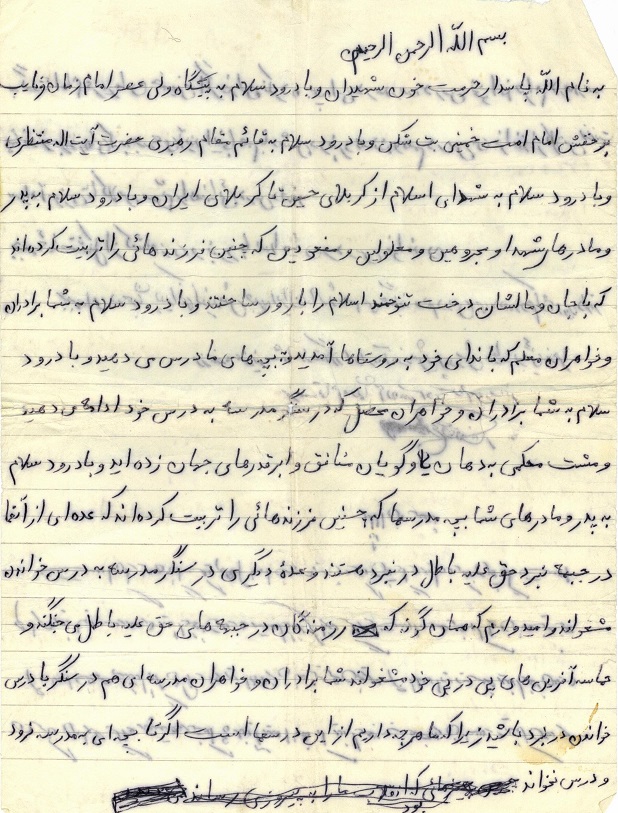 بسم الله الرحمن الرحیم
به نام الله پاسدار حرمت خون شهیدان و با درود سلام به پیشگاه ولی عصر امام زمان و نایب
بر حقش امام امت خمینی بت شکن و با درود سلام به قائم مقام رهبری حضرت آیت اله منتظری
و با درود سلام به شهدای اسلام از کربلای حسین تا کربلای ایران و با درود سلام به پدر
و مادرهای شهدا و مجروحین و معلولین و مفقودین که چنین فرزندهائی را تربیت کرده اند
که با جان و مالشان درخت تنومند اسلام را بارور ساختند و با درود سلام به شما برادران
و خواهران معلم که با ندای خود به روستاها آمدید و به بچه های ما درس می دهید و با درود
سلام به شما برادران و خواهران محصل که در سنگر مدرسه به درس خود ادامه می دهید
و مشت محکمی به دهان یاوه گویان منافق و ابرقدرهای جهان زده اید و با درود سلام
به پدر و مادرهای شما بچه مدرسها که چنین فرزندهائی را تربیت کرده اند که عده ای از آنها
در جبهه نبرد حق علیه باطل در نبرد هستند و عدهٔ دیگری در سنگر مدرسه به درس خواندن
مشغولند و امیدوارم که همان گونه که رزمندگان در جبهه های حق علیه باطل می جنگند و
حماسه آفرین های پی در پی خود مشغولند شما برادران و خواهران مدرسه ای هم در سنگر با درس
خواندن در نبرد باشید زیرا که ما هر چه داریم از این درسها است اگر تا بچه ای به مدرسه نرود
و درس نخواند